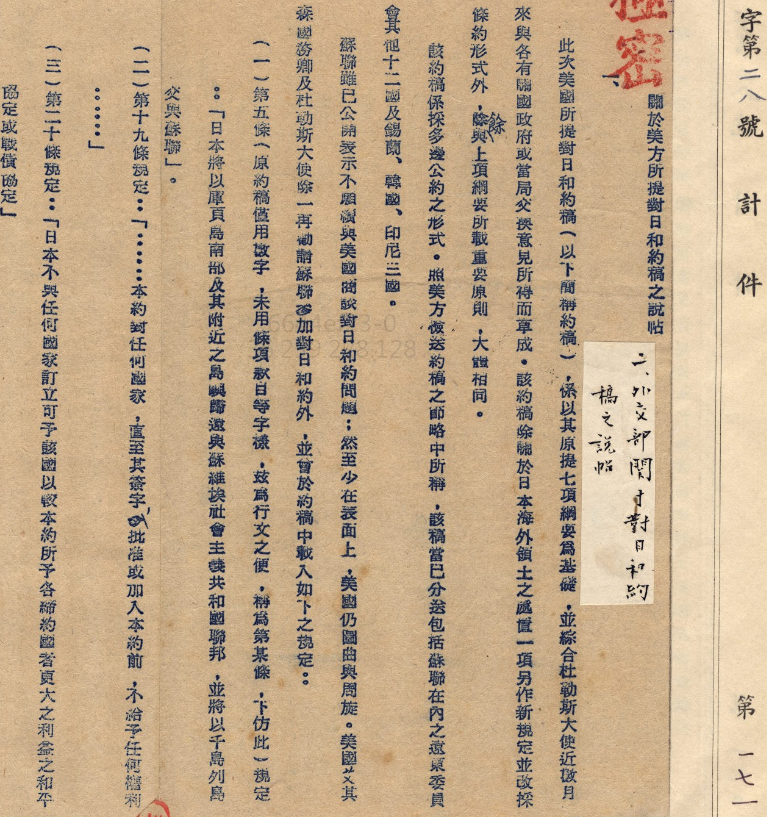 字第二八號 計 件 第 一七一
極密
關於美方所提對日和約稿之說帖
二、外交部關於對日和約
稿之說帖
一、
此次美國所提對日和約稿(以下簡稱約稿),係以其原提七項綱要為基礎,並綜合杜勒斯大使近數月
來與各有關國政府或當局交換意見所得而草成。該約稿除關於日本海外領土之處置一項另作新規定並改採
條約形式外,餘與上項綱要所載重要原則,大體相同。
該約稿係採多邊公約之形式。照美方致送約稿之節略中所稱,該稿當已分送包括蘇聯在內之遠東委員
會其他十二國及錫蘭、韓國、印尼三國。
蘇聯雖已公開表示不願續與美國商談對日和約問題;然至少在表面上,美國仍圖曲與周旋。美國艾其
森國務卿及杜勒斯大使除一再勸請蘇聯參加對日和約外,並曾於約稿中載入如下之規定:
(一)第五條(原約稿僅用數字,未用條項款目等字樣,茲為行文之便,稱為第某條,下仿此)規定
:「日本將以庫頁島南部及其附近之島嶼歸還與蘇維埃社會主義共和國聯邦,並將以千島列島
交與蘇聯」。
(二)第十九條規定:「……本約對任何國家,直至其簽字批准或加入本約前,不給予任何權利
……」
(三)第二十條規定:「日本不與任何國家訂立可予該國以較本約所予各締約國者更大之利益之和平
協定或戰債協定」